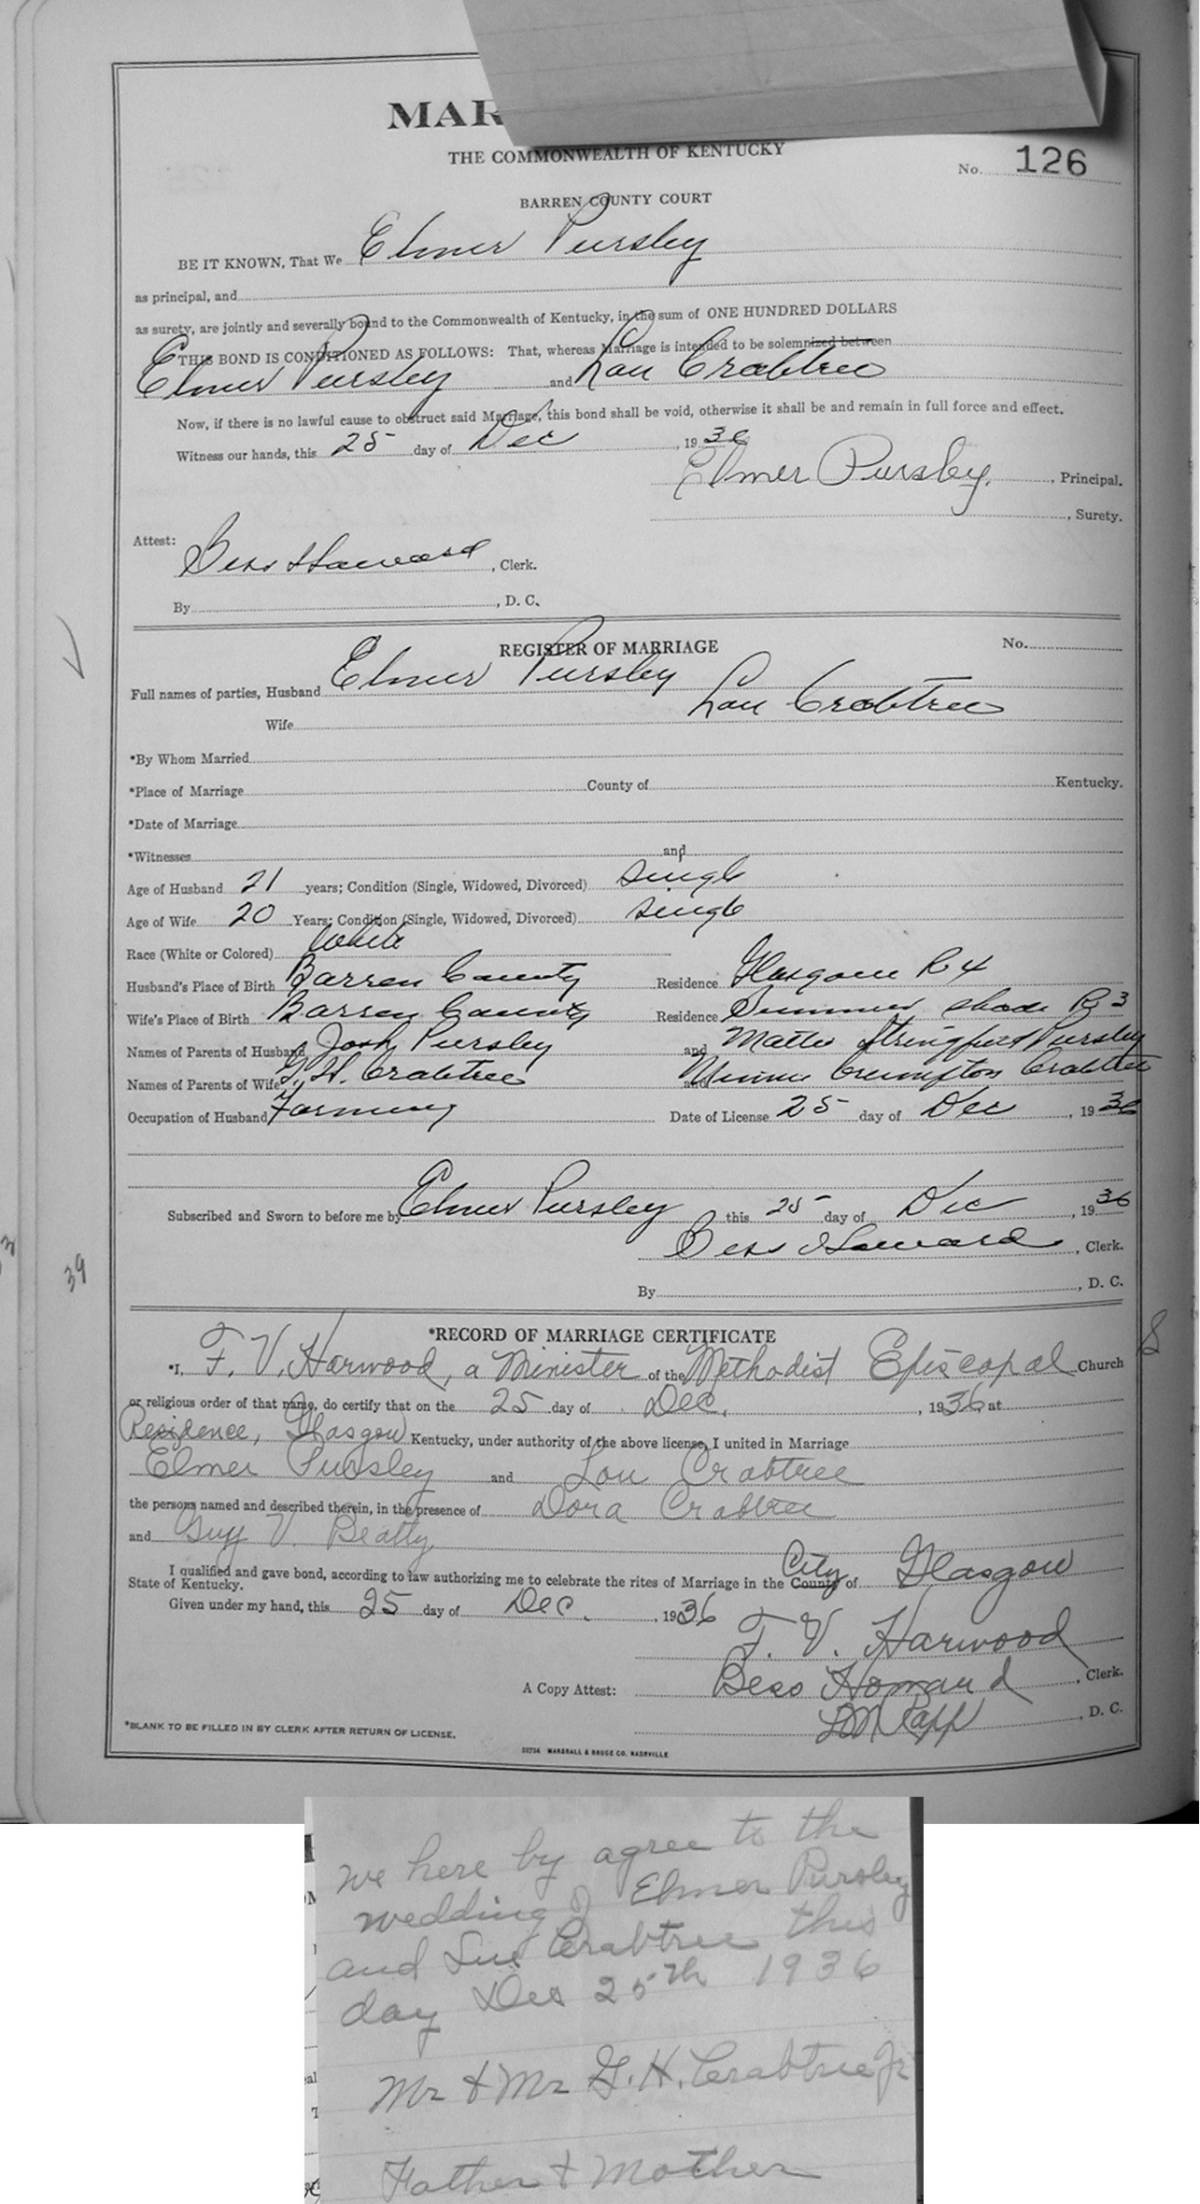 MAR
THE COMMONWEALTH OF KENTUCKY
No. 126
BARREN COUNTY COURT
BE IT KNOWN, That We Elmer Pursley
as principal, and
as surety, are jointly and severally bound to the Commonwealth of Kentucky, in the sum of ONE HUNDRED DOLLARS
THIS BOND IS CONDITIONED AS FOLLOWS: That, whereas Marriage is intended to be solemnized between
Elmer Pursley and Lou Crabtree
Now, if there is no lawful cause to obstruct said Marriage, this bond shall be void, otherwise it shall be and remain in full force and effect.
Witness our hands, this 25 day of Dec , 1936
Elmer Pursley. , Principal.
, Surety.
Attest:
Bess Howard , Clerk.
By , D. C.
REGISTER OF MARRIAGE No.
Full names of parties, Husband Elmer Pursley
Wife Lou Crabtree
*By Whom Married
*Place of Marriage County of Kentucky.
*Date of Marriage
*Witnesses and
Age of Husband 21 years; Condition (Single, Widowed, Divorced) Single
Age of Wife 20 Years; Condition (Single, Widowed, Divorced) Single
Race (White or Colored) White
Husband's Place of Birth Barren County Residence Glasgow R 4
Wife's Place of Birth Barren County Residence Summer Shade R 3
Names of Parents of Husband Josh Pursley and Pursley
Names of Parents of Wife G. H. Crabtree and Minnie Crumpton Crabtree
Occupation of Husband Farming Date of License 25 day of Dec , 1936
Subscribed and Sworn to before me by Elmer Pursley this 25 day of Dec , 1936
Bess Howard , Clerk.
39
By , D. C.
*RECORD OF MARRIAGE CERTIFICATE
*I, F. V. Harwood, a Minister of the Methodist Episcopal Church
or religious order of that name, do certify that on the 25 day of Dec. , 1936 at
Residence, Glasgow Kentucky, under authority of the above license, I united in Marriage
Elmer Pursley and Lou Crabtree
the persons named and described therein, in the presence of Dora Crabtree
and Guy V. Beatty
I qualified and gave bond, according to law authorizing me to celebrate the rites of Marriage in the County City of Glasgow
State of Kentucky.
Given under my hand, this 25 day of Dec. , 1936
F. V. Harwood
A Copy Attest: Bess Howard , Clerk.
, D. C.
*BLANK TO BE FILLED IN BY CLERK AFTER RETURN OF LICENSE.
MARSHALL & BRUCE CO. NASHVILLE
We here by agree to the
wedding of Elmer Pursley
and Lue Crabtree this
day Des 25th 1936
Mr & Mr G. H. Crabtree Jr
Father & Mother